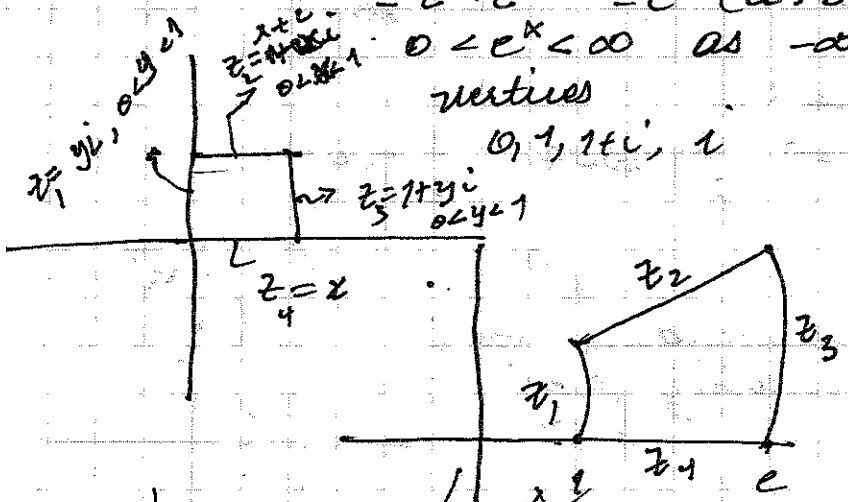 0 < e^x < ∞ as -∞
vertices
0, 1, 1+i, i
z₁ = yi, 0<y<1
x+i
z₂ =
0<x<1
z₃ = 1+yi
0<y<1
z₄ = x
z₂
z₃
z₁
z₄
1
e